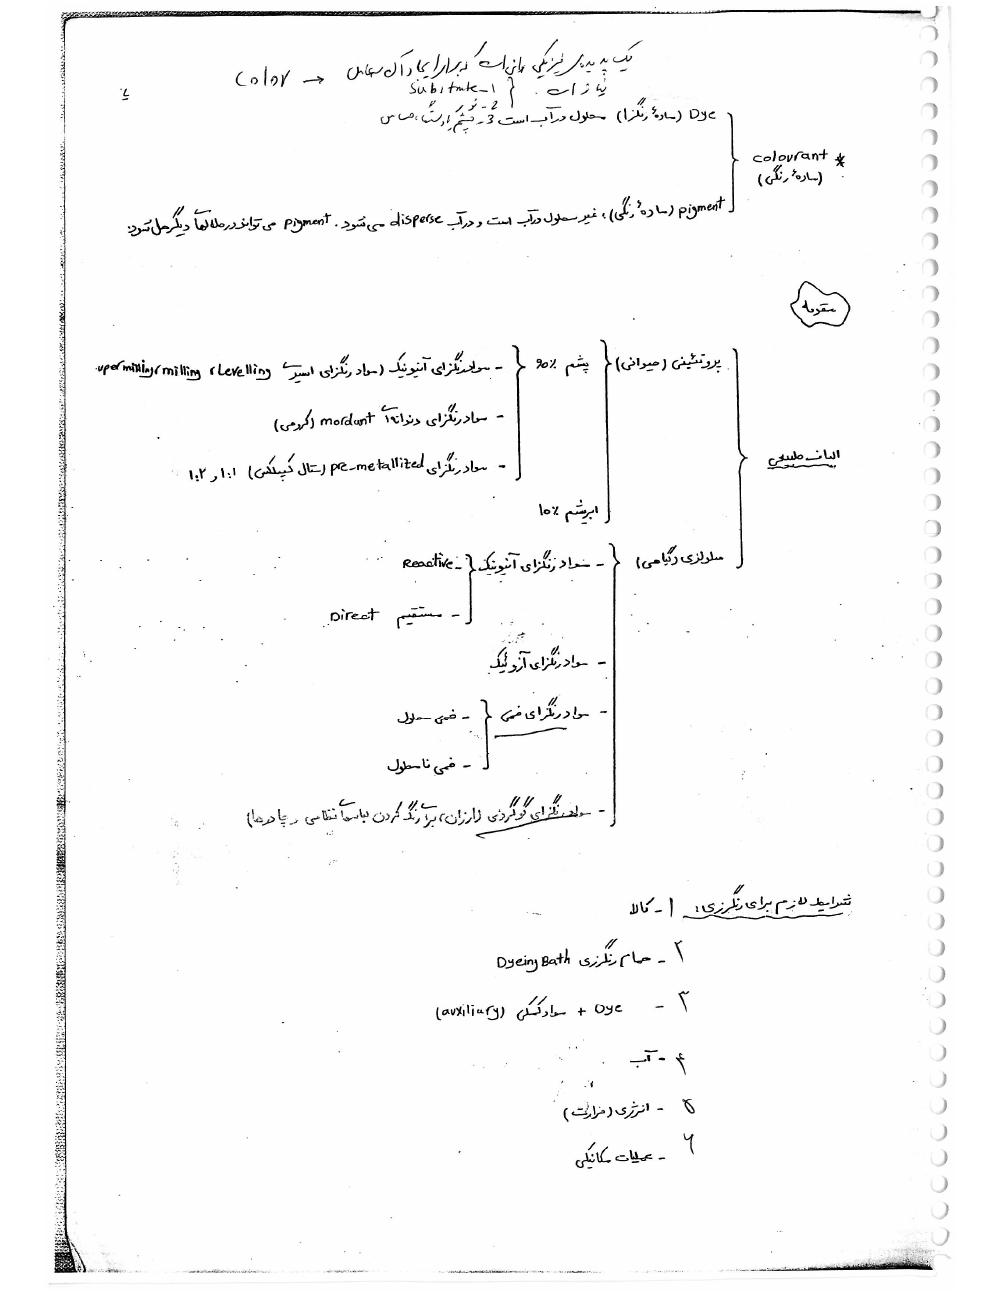 Color → یک پدیده فیزیکی روانی است که برای ایجاد آن سه عامل
نیاز است. 1- Substrate
2- نور
Dye (ماده رنگزا) محلول در آب است 3- چشم یا دستگاه حساس
* colourant
(ماده رنگی)
pigment (ماده رنگی)، غیر محلول در آب است و در آب disperse می شود. pigment می تواند در حلالهای دیگر حل شود.
مقدمه
پروتئینی (حیوانی) پشم ۹۰٪ - مواد رنگزای آنیونیک (مواد رنگزای اسیدی Levelling، milling، upermilling
- مواد رنگزای دندانه‌ای mordant (کرومی)
الیاف طبیعی
- مواد رنگزای pre-metallized (متال کمپلکس) ۱:۱ و ۱:۲
ابریشم ۱۰٪
سلولزی (گیاهی) - مواد رنگزای آنیونیک - Reactive
- مستقیم Direct
- مواد رنگزای آزوئیک
- مواد رنگزای خمی - خمی محلول
- خمی نامحلول
- مواد رنگزای گوگردی (ارزان، برای رنگ کردن لباسهای نظامی و چادرها)
شرایط لازم برای رنگرزی: ۱- کالا
۲- حمام رنگرزی Dyeing Bath
۳- Dye + مواد کمکی (auxiliary)
۴- آب
۵- انرژی (حرارت)
۶- عملیات مکانیکی